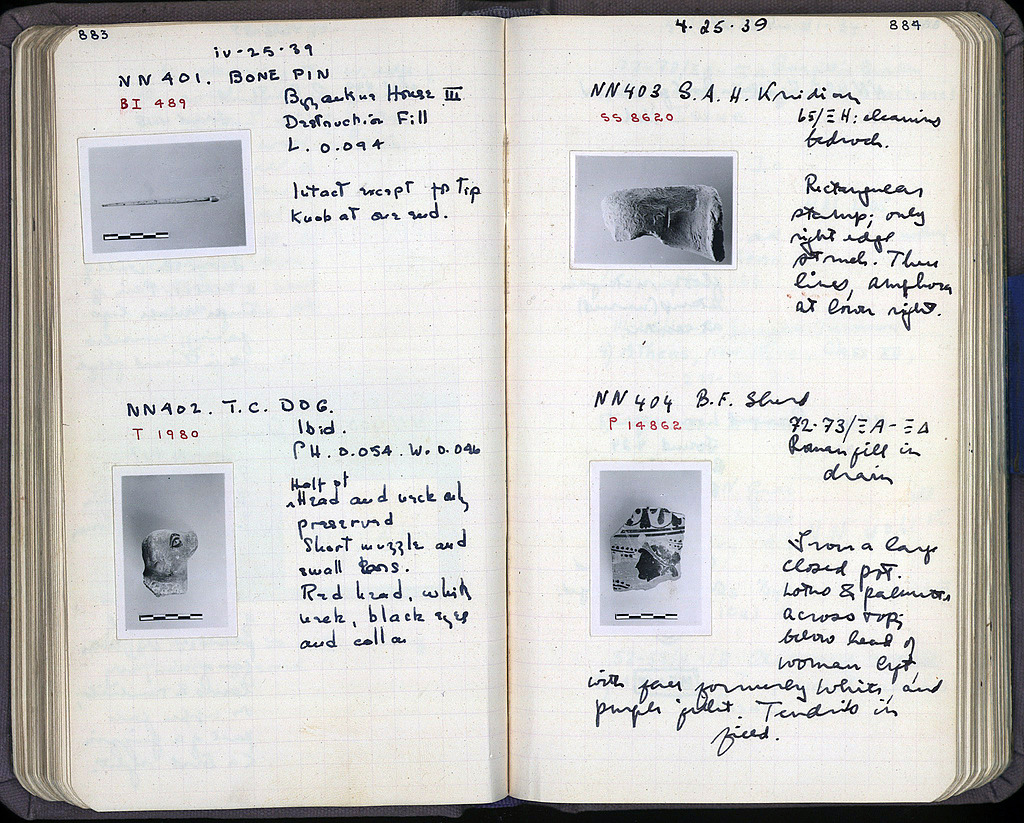 883
iv-25-39
NN 401. BONE PIN
BI 489
Byzantine House III
Destruction Fill
L. 0.094
Intact except for Tip
Knob at one end.
NN402. T.C. DOG.
T 1980
Ibid.
PH. 0.054. W. 0.046
Half of
Head and neck only
preserved
Short muzzle and
small ears.
Red head, white
neck, black eyes
and collar
4.25.39
884
NN403 S.A.H. Knidian
SS 8620
65/ΞH: cleaning
bedrock.
Rectangular
stamp; only
right edge
struck. Three
lines, amphora
at lower right.
NN 404 B.F. Sherd
P 14862
72-73/ΞA-ΞΔ
Roman fill in
drain
From a large
closed pot.
Lotus & palmettes
across top;
below head of
woman left,
with face formerly white, and
purple fillet. Tendrils in
field.